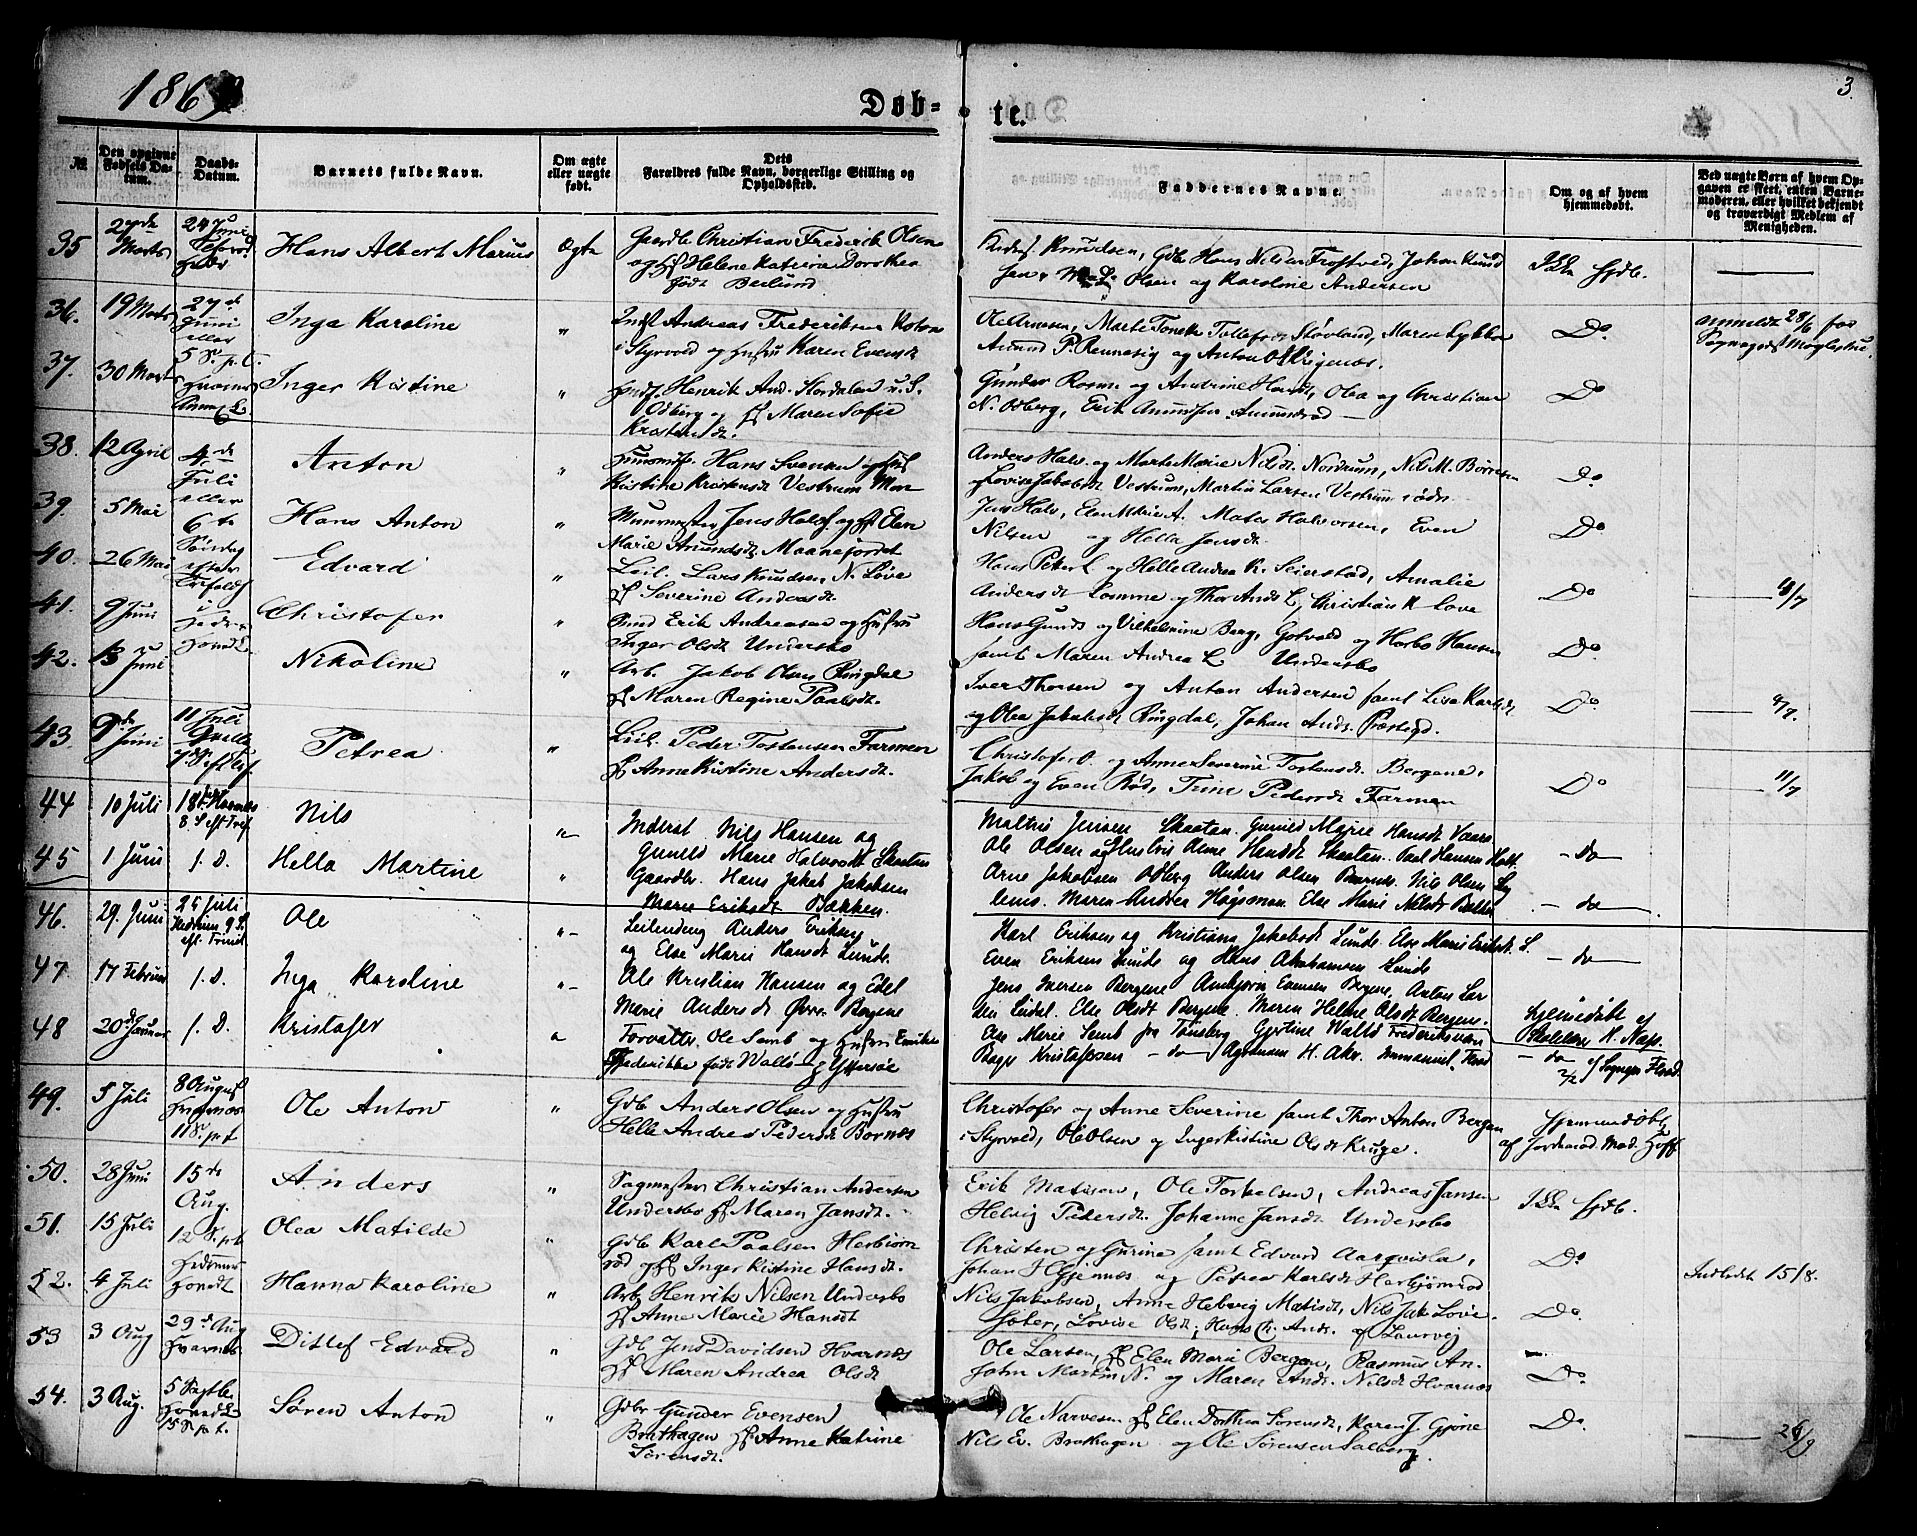 1869
Døb-te.
3.
№
Den opgivne Fødsels Datum.
Daabs-Datum.
Barnets fulde Navn.
Om ægte eller uægte født.
Dets Forældres fulde Navn, borgerlige Stilling og Opholdssted.
Faddernes Navne.
Om og af hvem hjemmedøbt.
Ved uægte Børn af hvem Opgaven er skeet, enten Barnemoderen, eller hvilket bekjendt og troværdigt Medlem af Menigheden.
35
27de Marts
24 Juni
Hans Albert Marius
Ægte
Gaardbr Christian Frederik Olsen
og Helene Katrine Dorothea
født Berlund
Knudsen, Gdb. Hans Nilsen Trostved, Johan Knud
sen, Olsen og Karoline Andersen
Ikke Hjdb.
36.
19 Marts
27de Juni
eller
5 S. p. t.
Inga Karoline
"
Andreas Frederiksen
i Styrvold og Hustru Karen Evensdt
Ole Arnesen, Marte Tonette Tollefsdt Støvland, Maren Lykke
Amund P. Rennesig og Anton
Do
anmeldt 28/6 for
37.
30 Marts
Hvarnes
Inger Kristine
"
Husf. Henrik And. Stordalen u. S.
Odberg og Hf Maren Sofie
Kristensdt.
Gunder Rosm. og Andrine Hansdt, Olea og Christian
N. Odberg, Erik Amundsen Amundrød
Do
38.
12 April
4de
Juli
eller
Anton
"
Husmd. Hans Svensen og Hf
Kristine Kristensdt Vestrum Moe
Anders Halv. og Marte Marie Nilsdt. Nordrum, Nils M. Børresen
og Lovise Jakobsdt Vestrum, Martin Larsen Vestrum
Do
39.
5 Mai
6te
Søndag
Hans Anton
"
Muurmester Jens Halvs. og Hf Elen
Marie Amundsdt. Maanejordet
Jens Halv, Elen Marie A. Mates Halvorsen, Even
Nilsen og Hella Jensdt.
Do
40.
26 Mai
efter
Edvard
"
Leil. Lars Knudsen N. Løve
Hf Severine Andersdt.
Hans Peter L og Helle Andrea K. Seierstad, Amalie
Andersdt Lomme og Thor Ands L, Christian K. Løve
Do
4/7
41.
9 Juni
i
Christofer
"
Erik Andreasen og Hustru
Inger Olsdt Undersbo
Hans Gunds og Vilhelmine Berg, Gotvold og Horbo Hansen
samt Maren Andrea L Undersbo
Do.
42.
13 Juni
Nikoline
"
Arb. Jakob Olsen Ringdal
Hf Maren Regine Paalsdt.
Iver Thorsen og Anton Andersen samt Lisa Karlsdt
og Olea Jakobsdt Ringdal, Johan Ands. Præstegd.
Do.
4/7.
43.
9de Juni
11 Juli
Petrea
"
Leil. Peder Tostensen Farmen
Hf Anne Kistine Andersdt.
Christofer O. og Anne Severine Tostensdt. Bergene,
Jakob og Even Rød, Trine Pedersdt Farmen
Do
11/7
44
10 Juli
18de Hvarnes
8 S eft Tref.
Nils
"
Inderst Nils Hansen og
Gunild Marie Halvorsdt Skaatan
Mathis Jensen Skaatan. Gunild Marie Hansdt Vaare
Ole Olsen og Hustru Anne Hansdt Skaatan. Paul Hansen Holt.
- do -
45
1 Juni
s. D.
Hella Martine
"
Gaardbr. Hans Jakob Jakobsen
Maren Eriksdt Bakken.
Arne Jakobsen Odberg Anders Olsen Nils Olsen
Maren Andrea Høgsmon, Else Marie Nilsdt Bakken
- do -
46.
29. Juni
25 Juli
Hedrum 9 S.
eft. Trinit.
Ole
"
Leilending Anders Eriksen
og Else Marie Hansdt Lunde.
Karl Eriksen og Kristiane Jakobsdt Lunde. Else Marie Eriksdt. L.
Even Eriksen Lunde og Hans Abrahamsen Lunde
- do -
47
17 Februar
s. D.
Inga Karoline
"
Ole Kristian Hansen og Edel
Marie Andersdt Øvre Bergene
Jens Iversen Bergene Anbjørn Evensen Bergene, Anton Lar
sen Lindal. Else Olsdt Bergene. Maren Helene Olsdt Bergene.
Hjemmedøbt af
Skolelærer H. Næss.
48
20de Januar
s. D.
Kristofer
"
Forvalter Ole Semb og Hustru Emilie
Frederikke født Walløe Yttersøe
Else Marie Semb fra Tønsberg Gjertine Walløe Frederiksværn
Kristofersen - do - H. Emmanuel
- do -
2/2 af Sogneprest Flood.
49.
5 Juli
8 August
Hvarnæs
11 S. p. t
Ole Anton
"
Gdb Anders Olsen og Hustru
Helle Andrea Pedersdt Bornæs
Christofer og Anne Severine samt Thor Anton Bergan
i Styrvold, Ole Olsen og Inger Kistine Olsdt Kruge.
Hjemmedøbt
af Jordmod. Mad. Hoff
50.
28 Juni
15de
Aug.
Anders
"
Sagmester Christian Andersen
Undersbo Hf Maren Jansdt.
Erik Matisen, Ole Torkelsen, Andreas Jansen
Helvig Pedersdt. Johanne Jansdt Undersbo
Ikke Hjdb.
51.
15 Juli
12 S. p. t
Olea Matilde
"
Gdb Karl Paalsen Herbjørn
rød og Hf Inger Kistine Hansdt.
Christen og Gurine samt Edvard Aarqvisla,
Johan H Gjennæs og Petrea Karlsdt Herbjørnrød
Do
Indledt 15/8.
52.
4 Juli
Hanna Karoline
"
Arb Henrik Nilsen Undersbo
Hf Anne Marie Hansdt
Nils Jakobsen, Anne Helvig Matisdt, Nils Jak. Løve.
Lovise Olsdt, Hans Ch. Ands. af Laurvig
Do.
53
3 Aug
29de Aug
Hvarnes
Ditlef Edvard
"
Gdb Jens Davidsen Hvarnæs
Hf Maren Andrea Olsdt
Ole Larsen, Hf Elen Marie Bergan, Rasmus An.
John Martin N. og Maren Ands. Nilsdt Hvarnæs
Do.
54.
3 Aug.
5 Septbr
15 S. p. t.
Søren Anton
"
Gdbr Gunder Evensen
Brathagen Hf Anne Katrine
Sørensdt.
Ole Narvesen Hf Elen Dorthea Sørensdt, Karen J. Gjøne
Nils Ev. Brathagen og Ole Sørensen Solberg
Do.
26/9